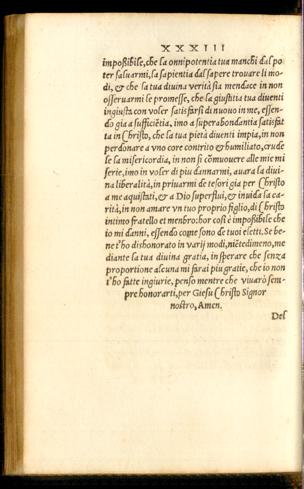 XXXIII
impoßibile, che la onnipotentia tua manchi dal po
ter saluarmi, la sapientia dal sapere trouare li mo-
di, & che la tua diuina verità sia mendace in non
osseruarmi le promesse, che la giustitia tua diuenti
ingiusta con voler satisfarsi di nuouo in me, essen-
do gia a sufficiētia, imo a superabondantia satisfat
ta in Christo, che la tua pietà diuenti impia, in non
perdonare a vno core contrito & humiliato, crude
le la misericordia, in non si cōmouere alle mie mi
serie, imo in voler di piu dannarmi, auara la diui-
na liberalità, in priuarmi de tesori gia per Christo
a me aquistati, & a Dio superflui, & inuida la ca-
rità, in non amare vn tuo proprio figlio, di Christo
intimo fratello et menbro: hor cosi è impoßibile che
io mi danni, essendo come sono de tuoi eletti. Se be
ne t'ho dishonorato in varij modi, niētedimeno, me
diante la tua diuina gratia, in sperare che senza
proportione alcuna mi farai piu gratie, che io non
t'ho fatte ingiurie, penso mentre che viuarò sem-
pre honorarti, per Giesu Christo Signor
nostro, Amen.
Del